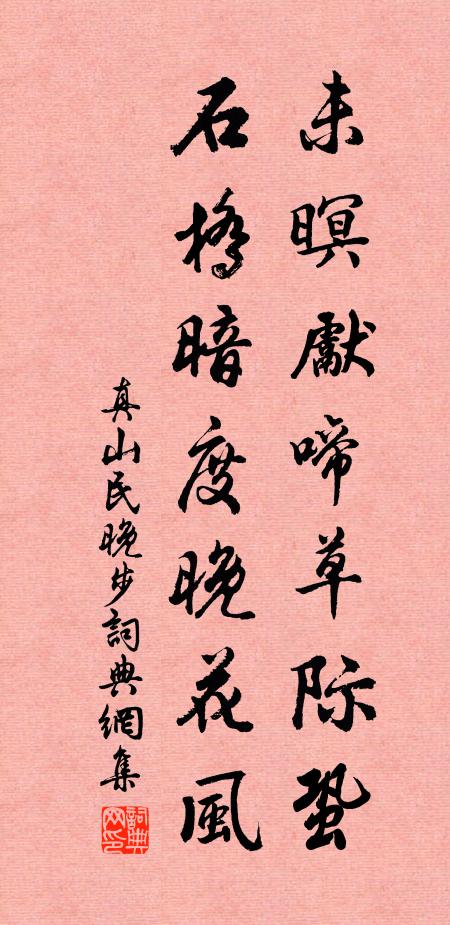 未暝獻啼草际蛩
石橋暗度晚花風
真山民晚步詞典網集
詞典
网印